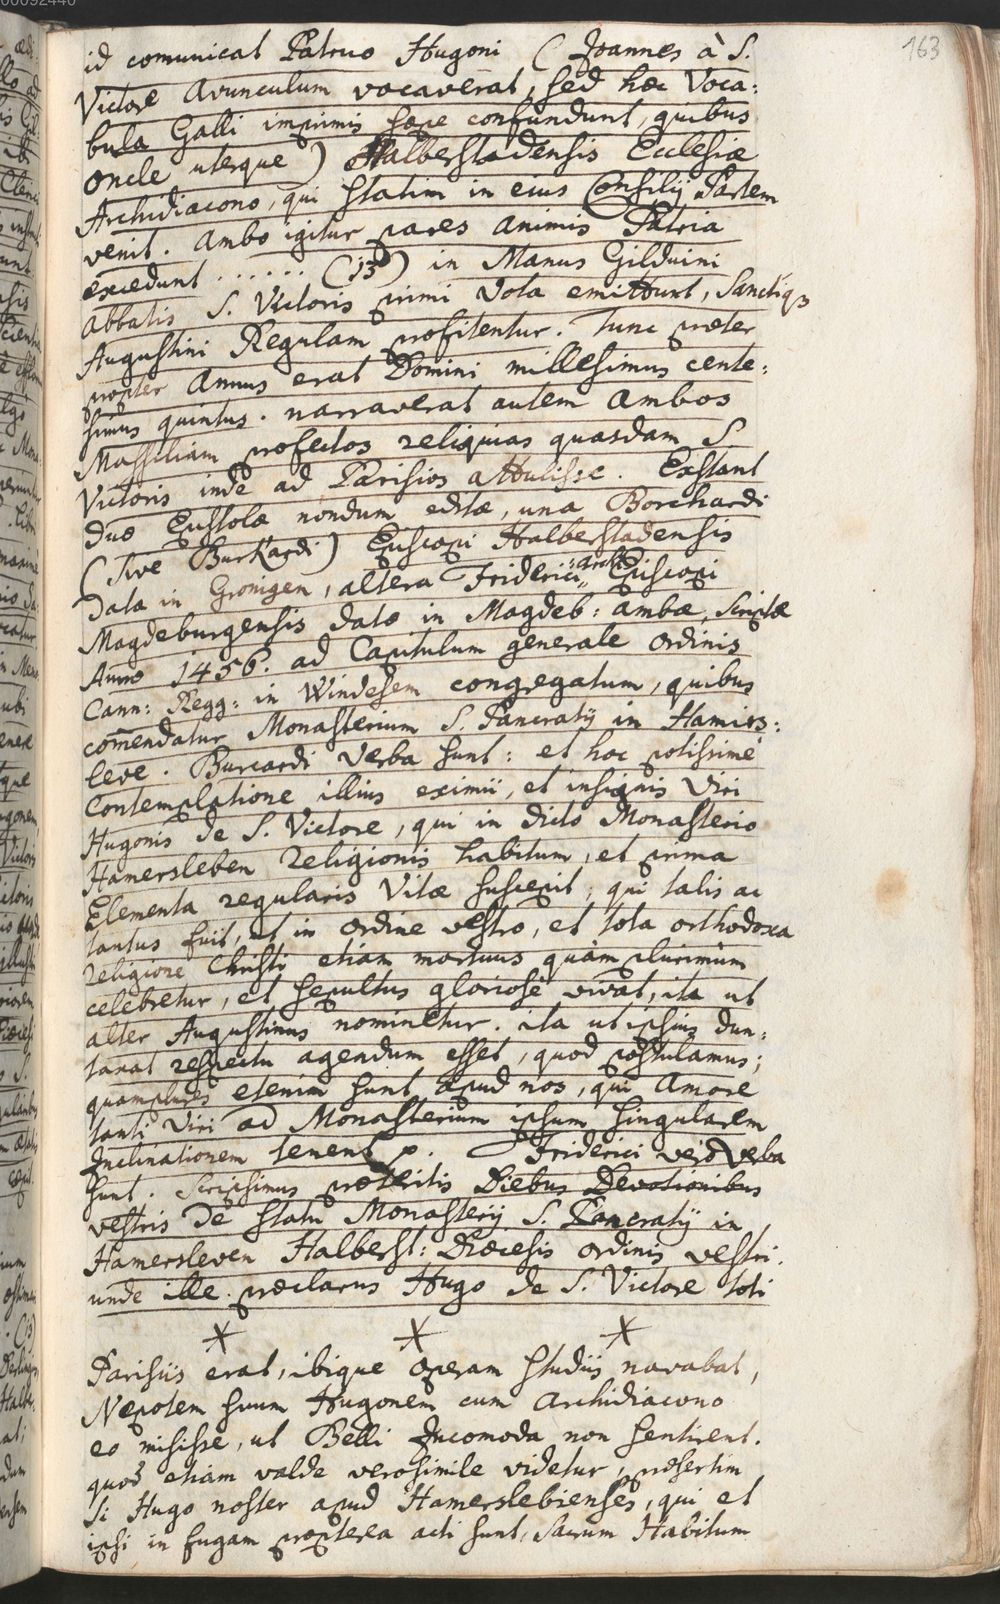 163
id comunicat Patruo Hugoni ( Joannes à S.
Victore Avunculum vocaverat, sed hæc Voca:
bula Galli imprimis sæpe confundunt, quibus
oncle uterque ) Halberstadensis Ecclesiæ
Archidiacono, qui statim in eius Consilij Partem
venit. Ambo igitur pares animis Patria
excedunt ...... (13) in Manus Gilduini
abbatis S. Victoris primi Vota emittunt, Sanctiqȝ
Augustini Regulam profitentur. Tunc præter
propter Annus erat Domini millesimus cente:
simus quintus. narraverat autem Ambos
Massiliam profectos reliquias quasdam S.
Victoris inde ad Parisios attulisse. Exstant
duo Epistolæ nondum editæ, una Borchardi
(sive Burkardi) Episcopi Halberstadensis
Data in Gronigen, altera Friderici Archi Episcopi
Magdeburgensis dato in Magdeb: ambæ scriptæ
Anno 1456. ad Capitulum generale ordinis
Cann: Regg: in Windesem congregatum, quibus
comendatur Monasterium S. Pancratij in Hamirs:
leve. Burcardi verba sunt: et hoc potissimè
Contemplatione illius eximii, et insignis Viri
Hugonis de S. Victore, qui in dicto Monasterio
Hamersleben religionis habitum, et prima
Elementa regularis Vitæ suscepit, qui talis ac
tantus fuit, ut in ordine vestro, et tota orthodoxa
religione Christi etiam mortuus quàm plurimùm
celebretur, et sepultus gloriosè vivat, ita ut
alter Augustinus nominetur. ita ut ipsius dun:
taxat respectu agendum esset, quod postulamus;
quamplures etenim sunt apud nos, qui Amore
tanti Viri ad Monasterium ipsum singularem
Inclinationem tenent p. Friderici verò verba
sunt. Scripsimus præteritis Diebus Devotionibus
vestris de statu Monasterij S. Pancratij in
Hamersleven Halberst: Diœcesis ordinis vestri,
unde ille præclarus Hugo de S. Victore toti
* * *
Parisiis erat, ibique operam studiis navabat,
Nepotem suum Hugonem cum Archidiacono
eo misisse, ut Belli Incomoda non sentirent.
quod etiam valde verosimile videtur, præsertim
si Hugo noster apud Hamerslebienses, qui et
ipsi in fugam propterea acti sunt, Sacrum Habitum